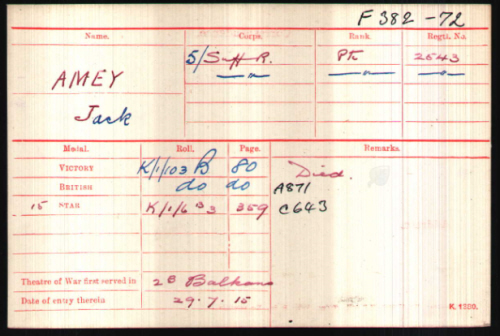 F 382 - 72
Name. Corps. Rank. Regtl. No.
AMEY 5/S-H-R. Pte 2543
Jack — " — — " — — " —
Medal. Roll. Page. Remarks.
VICTORY K/1/103 B 80 Died.
BRITISH do do A871
15 STAR K/1/6 B3 359 C643
Theatre of War first served in 2B Balkans
Date of entry therein 29.7.15 K. 1380.